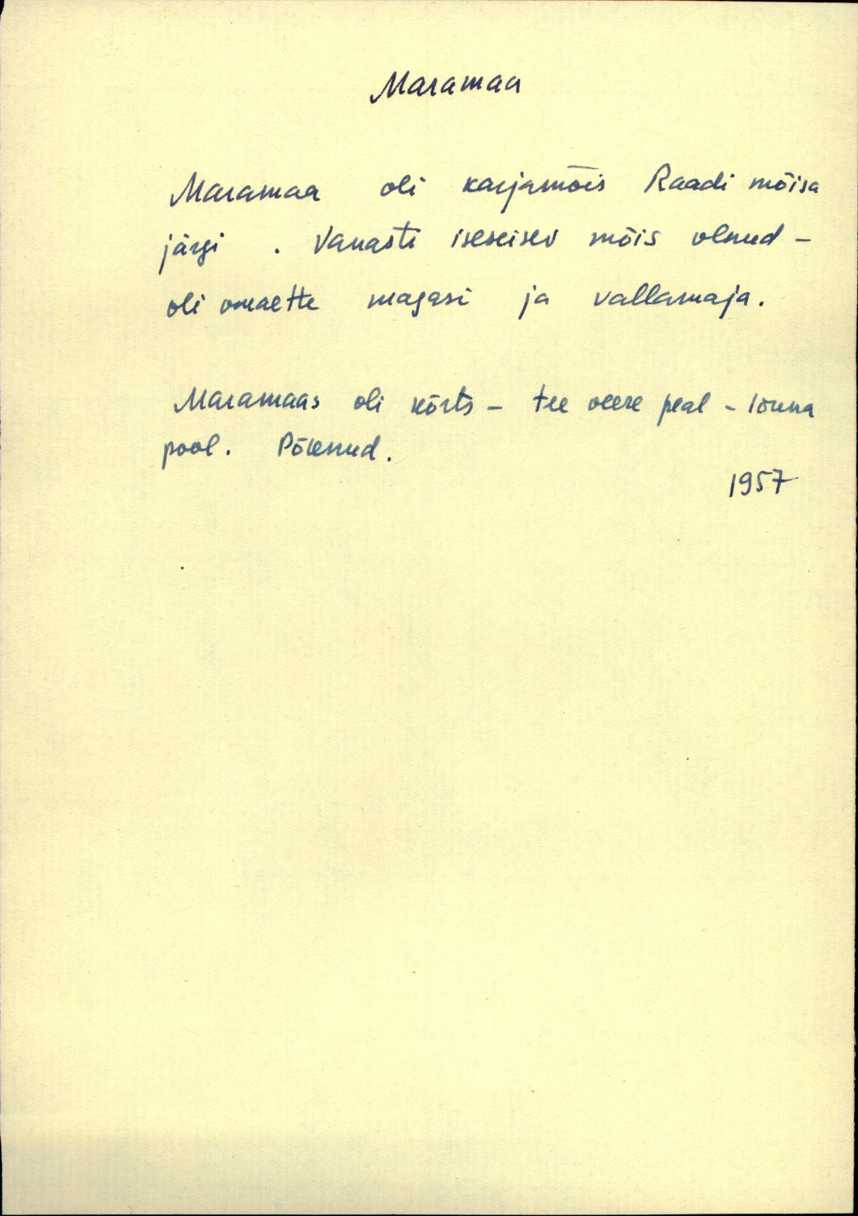 Maramaa
Maramaa oli karjamõis Raadi mõisa
järgi . Vanasti iseseisev mõis olnud -
oli omaette magasi ja vallamaja.
Maramaas oli kõrts - tee veere peal - lõuna
pool. Põlenud.
1957